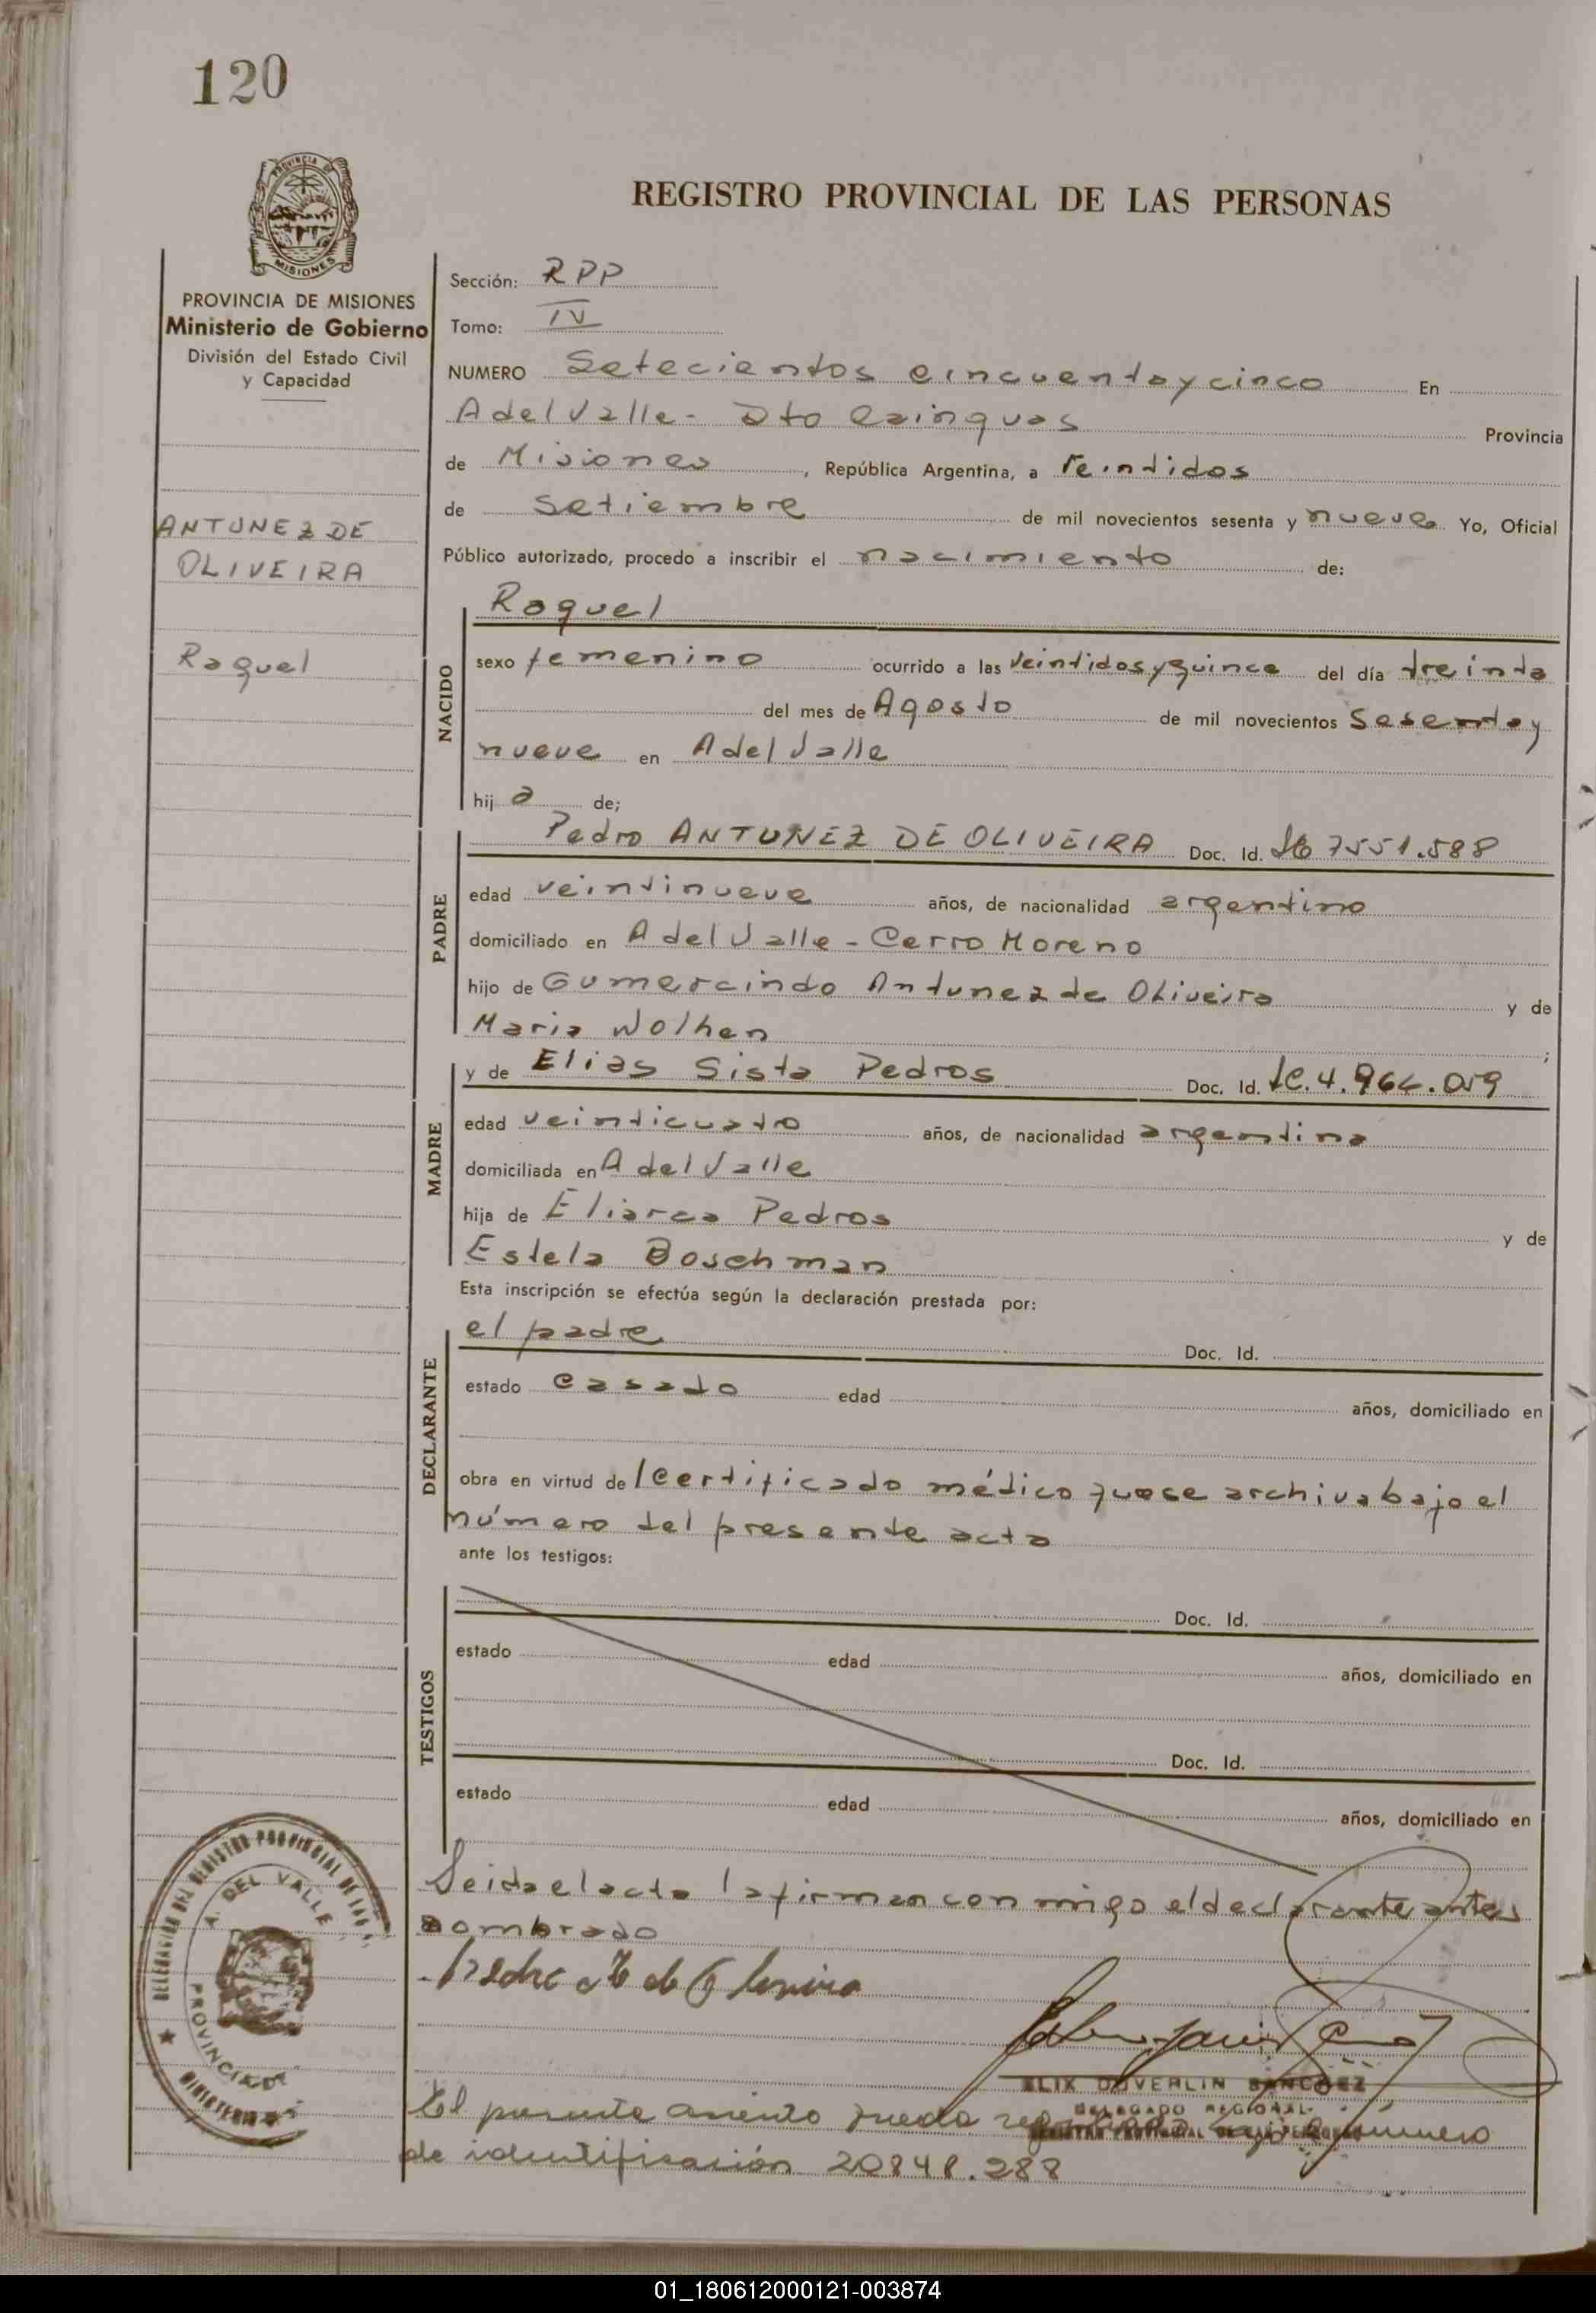 120
REGISTRO PROVINCIAL DE LAS PERSONAS
PROVINCIA DE MISIONES
Ministerio de Gobierno
División del Estado Civil
y Capacidad
ANTUNEZ DE
OLIVEIRA
Raquel
Sección: RPP
Tomo: IV
NUMERO Setecientos cincuenta y cinco En
A del Valle - Dto Cainguas Provincia
de Misiones, República Argentina, a veintidos
de Setiembre de mil novecientos sesenta y nueve Yo, Oficial
Público autorizado, procedo a inscribir el nacimiento de:
NACIDO
Raquel
sexo femenino ocurrido a las veintidos y quince del día treinta
del mes de Agosto de mil novecientos Sesenta y
nueve en A del Valle
hij a de;
PADRE
Pedro ANTUNEZ DE OLIVEIRA Doc. Id. 7551.588
edad veintinueve años, de nacionalidad argentino
domiciliado en A del Valle - Cerro Moreno
hijo de Gumercindo Antunez de Oliveira y de
Maria Wolhen ;
MADRE
y de Elias Sista Pedros Doc. Id. LC. 4.964.059
edad veinticuatro años, de nacionalidad argentina
domiciliada en A del Valle
hija de Eliarca Pedros y de
Estela Boschman
Esta inscripción se efectúa según la declaración prestada por:
DECLARANTE
el padre Doc. Id.
estado casado edad años, domiciliado en
obra en virtud de l certificado médico que se archiva bajo el
número del presente acta
ante los testigos:
TESTIGOS
Doc. Id.
estado edad años, domiciliado en
Doc. Id.
estado edad años, domiciliado en
Leida el acta la firman con migo el declarante antes
nombrado
Pedro A de Oliveira
DELEGACIÓN DEL REGISTRO PROVINCIAL DE LAS P.
A. DEL VALLE
PROVINCIA DE
MISIONES
ELIX DUVERLIN SANCHEZ
DELEGADO REGIONAL
REGISTRO PROVINCIAL DE LAS PERSONAS
El presente asiento queda registrado bajo el número
de identificación 20848.288
01_180612000121-003874